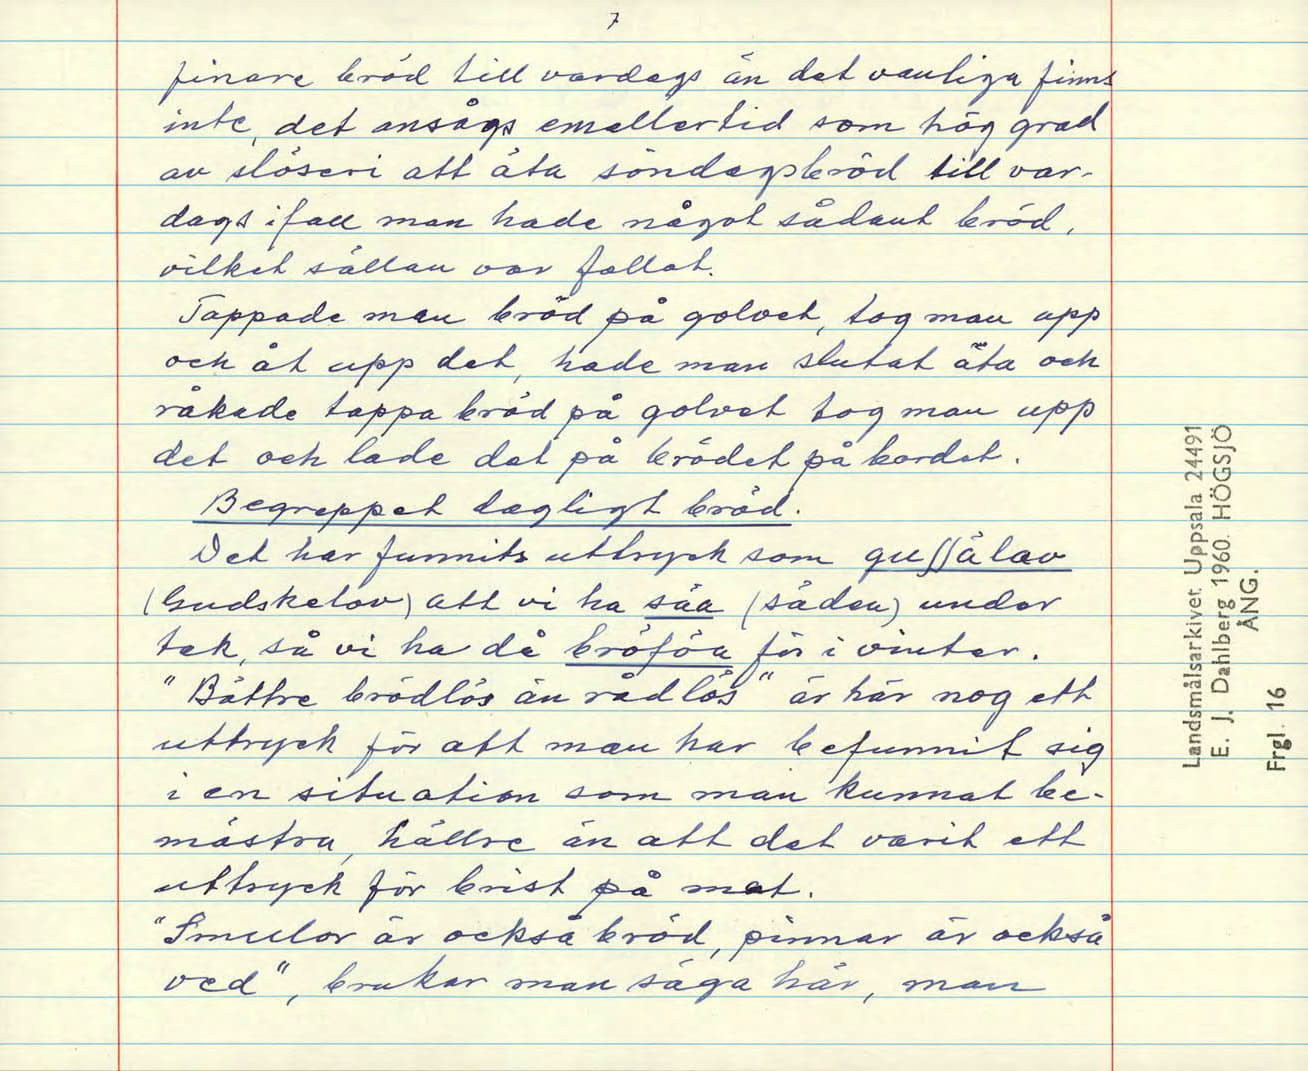 7
finare bröd till vardags än det vanliga finns
inte, det ansågs emellertid som hög grad
av slöseri att äta söndagsbröd till var-
dags ifall man hade något sådant bröd,
vilket sällan var fallet.
Tappade man bröd på golvet, tog man upp
och åt upp det, hade man slutat äta och
råkade tappa bröd på golvet tog man upp
det och lade det på brödet på bordet.
Begreppet dagligt bröd.
Det har funnits uttryck som guſſälav
(Gudskelov) att vi ha säa (säden) under
tak, så vi ha då bröföa för i vinter.
"Bättre brödlös än rådlös" är här nog ett
uttryck för att man har befunnit sig
i en situation som man kunnat be-
mästra, hällre än att det varit ett
uttryck för brist på mat.
"Smulor är också bröd, pinnar är också
ved", brukar man säga här, man
Landsmålsarkivet Uppsala 24491
E. J. Dahlberg 1960. HÖGSJÖ
ÅNG.
Frgl. 16